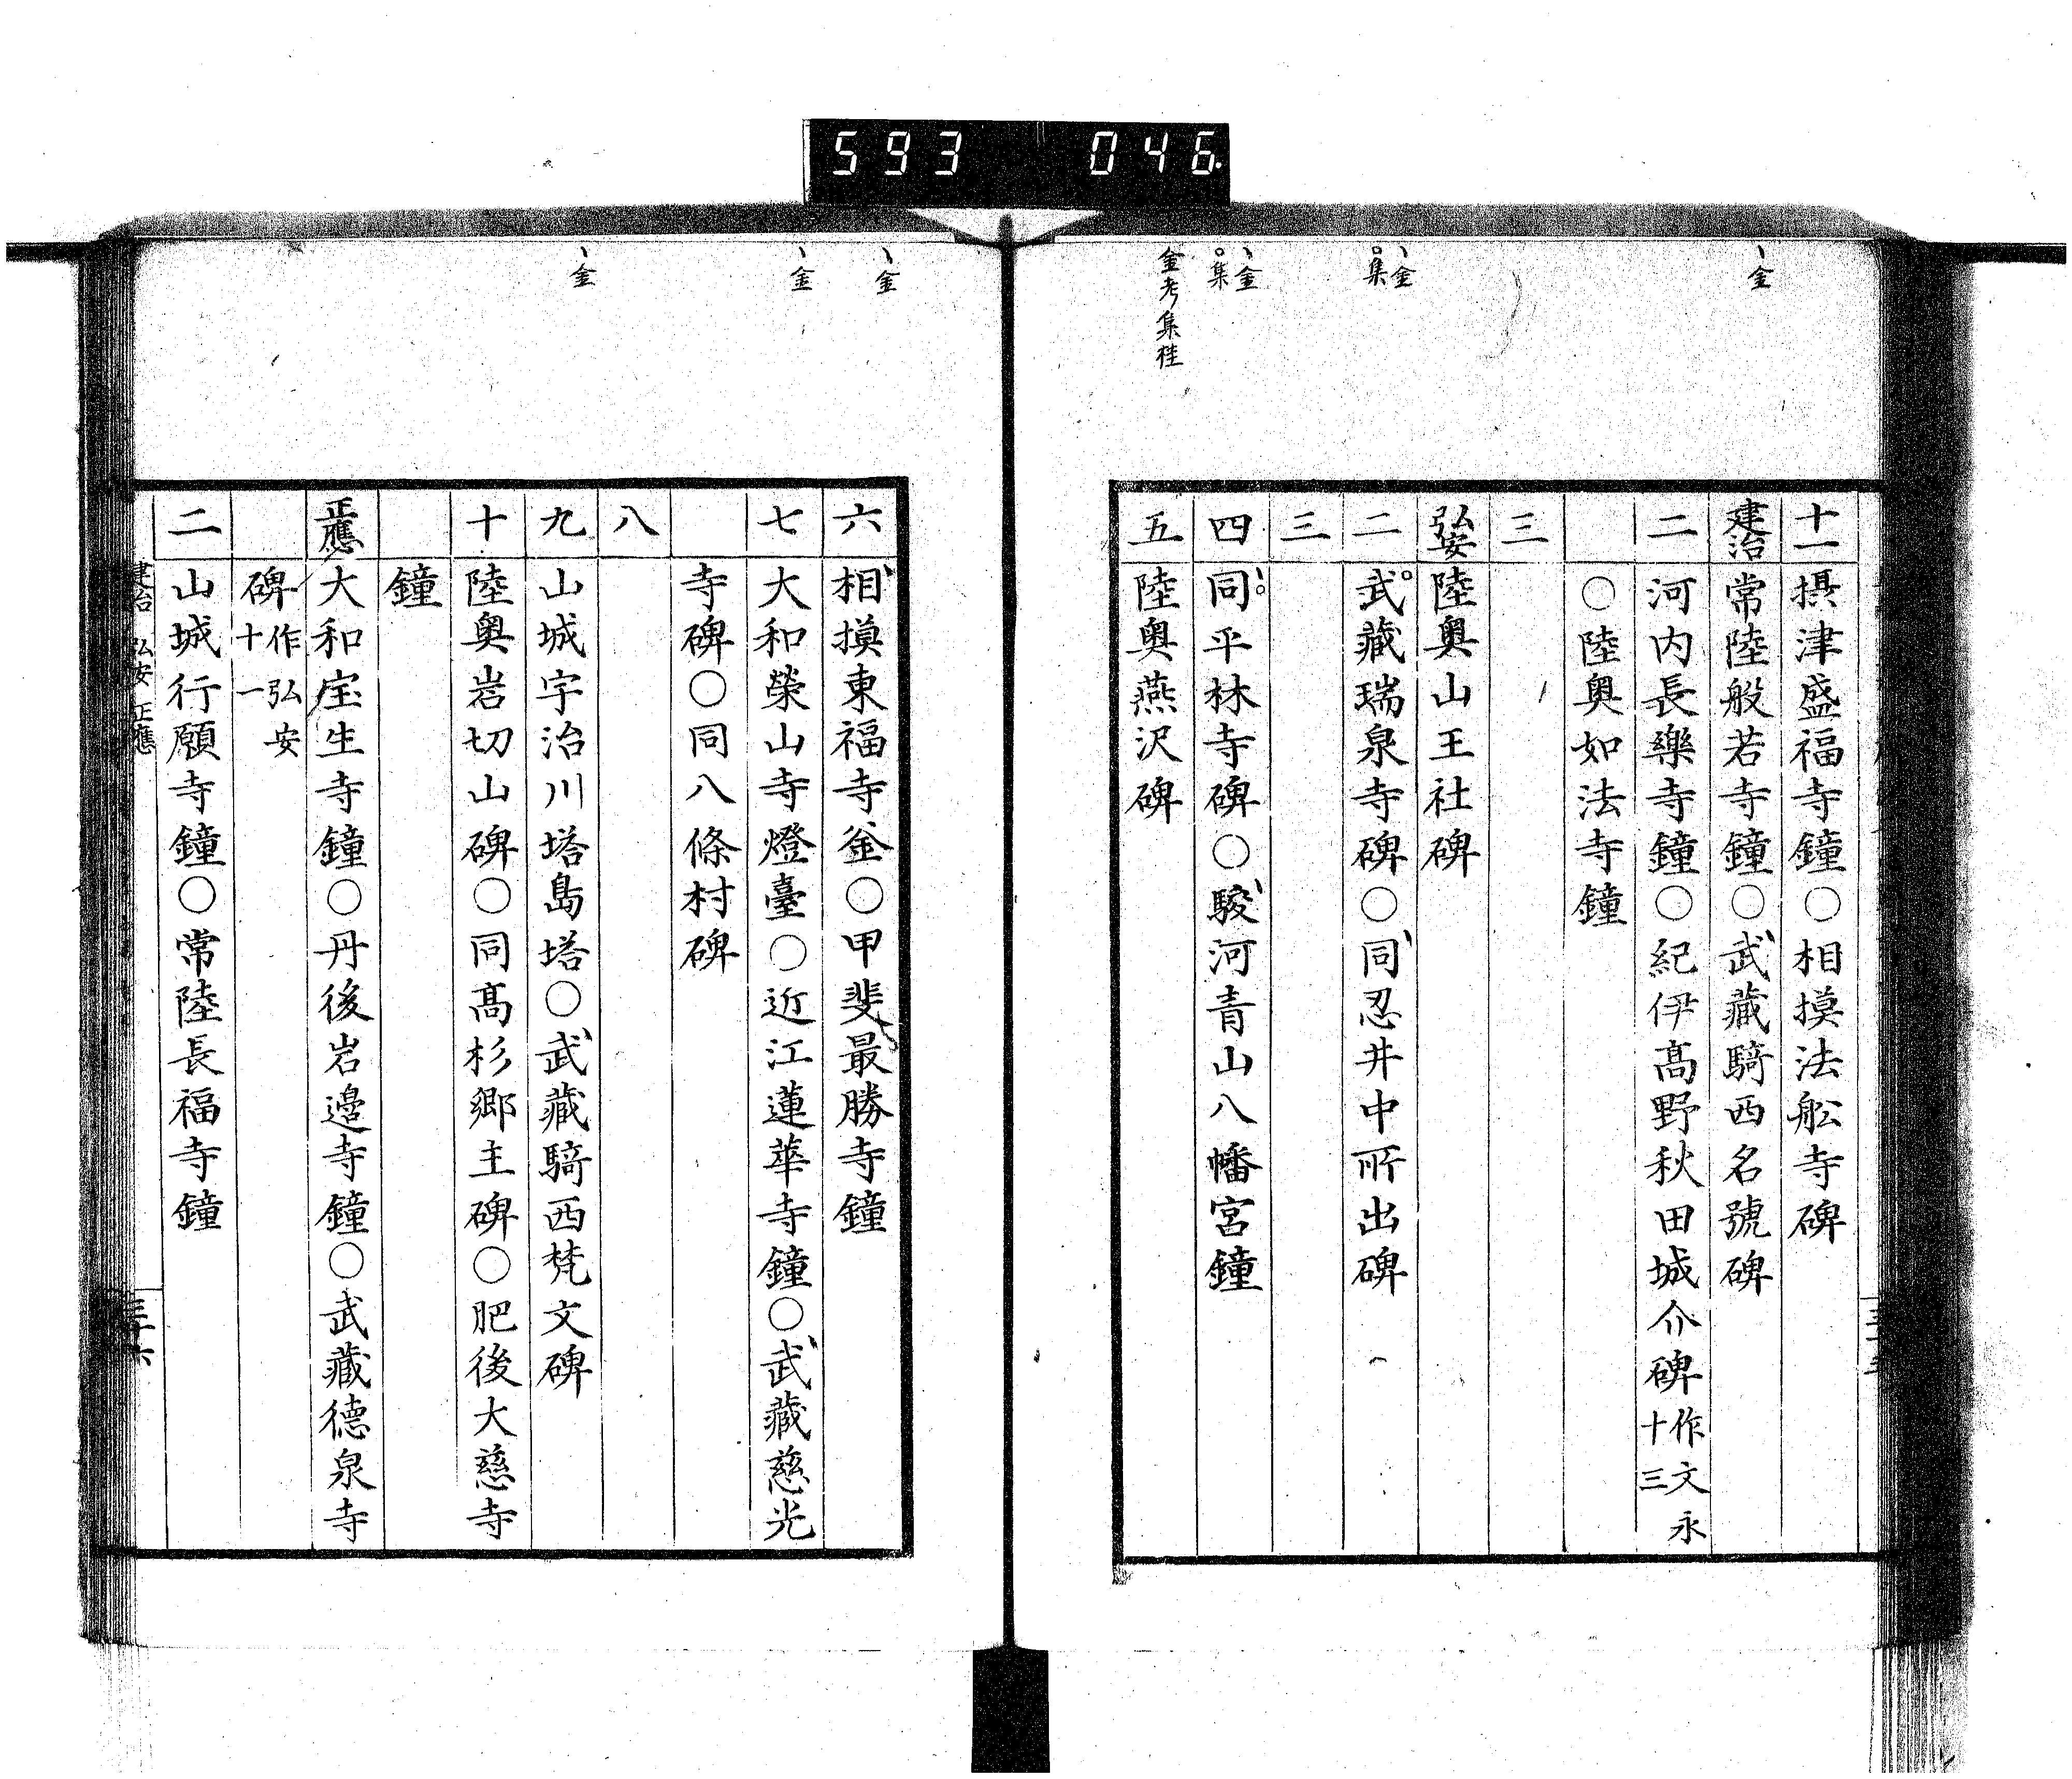 593 046
金
金
集
金
集
金考集桂
十一 摂津盛福寺鐘〇相摸法舩寺碑
建治 常陸般若寺鐘〇武藏騎西名號碑
二 河内長樂寺鐘〇紀伊髙野秋田城介碑作文永十三
〇陸奥如法寺鐘
三
弘安 陸奥山王社碑
二 武藏瑞泉寺碑〇同忍井中所出碑
三
四 同平林寺碑〇駿河青山八幡宮鐘
五 陸奥燕沢碑
金
金
金
六 相摸東福寺釜〇甲斐最勝寺鐘
七 大和榮山寺燈臺〇近江蓮華寺鐘〇武藏慈光
寺碑〇同八條村碑
八
九 山城宇治川塔島塔〇武藏騎西梵文碑
十 陸奥岩切山碑〇同髙杉郷主碑〇肥後大慈寺
鐘
正應 大和宝生寺鐘〇丹後岩邉寺鐘〇武藏德泉寺
碑作弘安十一
二 山城行願寺鐘〇常陸長福寺鐘
建治 弘安 正應
三十六